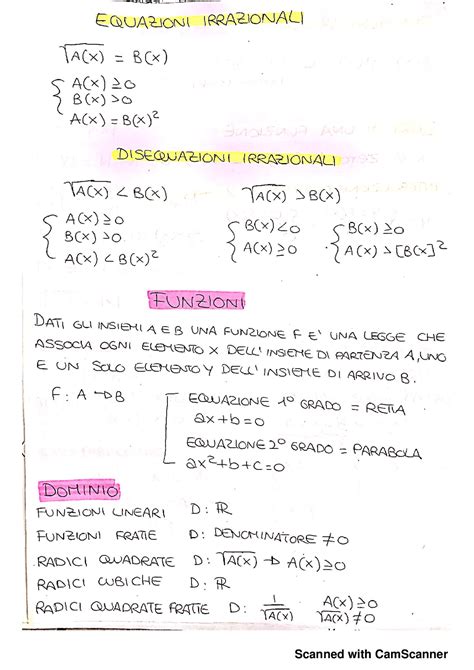 EQUAZIONI IRRAZIONALI
√A(x) = B(x)
{ A(x) ≥0
B(x) >0
A(x) = B(x)²
DISEQUAZIONI IRRAZIONALI
√A(x) < B(x) √A(x) > B(x)
{ A(x) ≥0 { B(x) <0 { B(x) ≥0
B(x) >0 A(x) ≥0 A(x) > [B(x)]²
A(x) < B(x)²
FUNZIONI
DATI GLI INSIEMI A E B UNA FUNZIONE F E' UNA LEGGE CHE
ASSOCIA OGNI ELEMENTO X DELL'INSIEME DI PARTENZA A, UNO
E UN SOLO ELEMENTO Y DELL'INSIEME DI ARRIVO B.
F: A → B EQUAZIONE 1° GRADO = RETTA
ax+b=0
EQUAZIONE 2° GRADO = PARABOLA
ax²+b+c=0
DOMINIO
FUNZIONI LINEARI D: ℝ
FUNZIONI FRATTE D: DENOMINATORE ≠0
RADICI QUADRATE D: √A(x) → A(x) ≥0
RADICI CUBICHE D: ℝ
RADICI QUADRATE FRATTE D: 1/√A(x) A(x) ≥0
√A(x) ≠0
Scanned with CamScanner